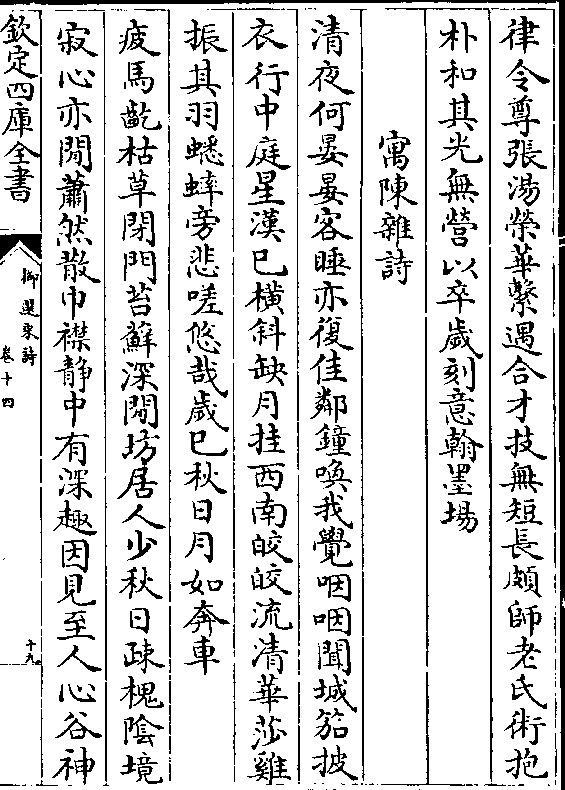 律令尊張湯榮華繫遇合才技無短長頗師老氏術抱
朴和其光無營以卒歲刻意翰墨場
寓陳雜詩
清夜何晏晏客睡亦復佳鄰鐘喚我覺咽咽聞城笳披
衣行中庭星漢已橫斜缺月挂西南皎皎流清華莎雞
振其羽蟋蟀旁悲嗟悠哉歲已秋日月如奔車
疲馬齕枯草閉門苔蘚深閒坊居人少秋日疎槐陰境
寂心亦閒蕭然散巾襟静中有深趣因見至人心谷神
欽定四庫全書
御選宋詩
卷十四
十九